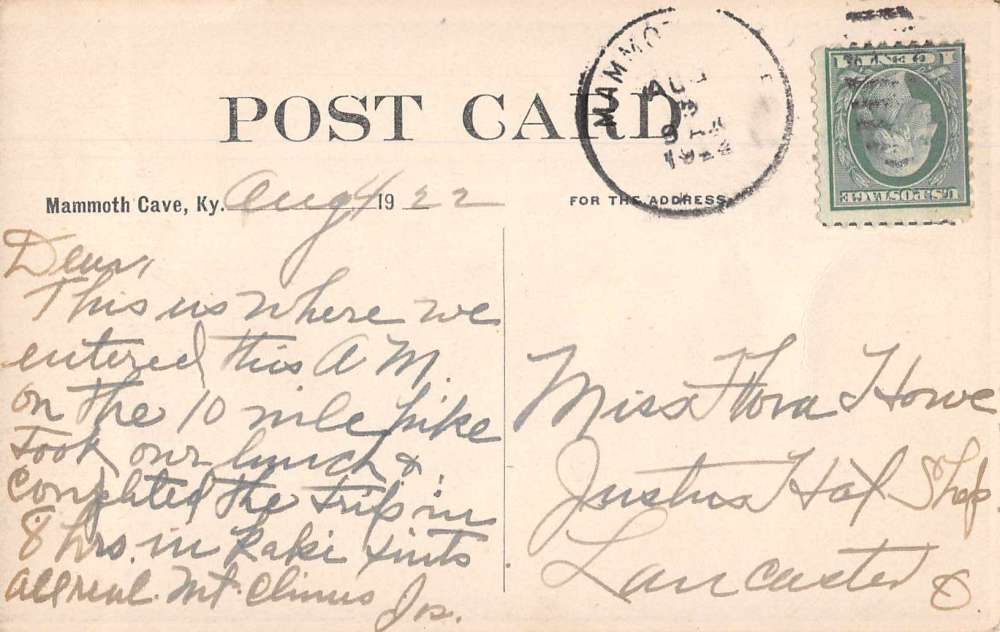 POST CARD
MAMMO
AUG
3
9
1922
1 CENT 1
U.S. POSTAGE
Mammoth Cave, Ky. Aug 4 1922
FOR THE ADDRESS
Dear,
This is where we
entered this A M.
on the 10 mile hike
Took our lunch &
Completed the trip in
8 hrs. in kaki suits
all real Mt. Climers
Jos.
Miss Flora Howe
Justus Hat Shop
Lancaster
O